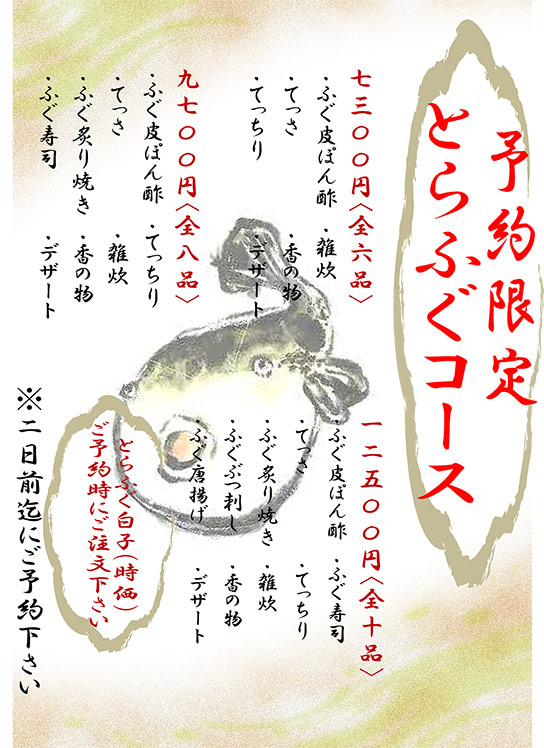 予約限定
とらふぐコース
七三〇〇円〈全六品〉
・ふぐ皮ぽん酢 ・雑炊
・てっさ ・香の物
・てっちり ・デザート
九七〇〇円〈全八品〉
・ふぐ皮ぽん酢 ・てっちり
・てっさ ・雑炊
・ふぐ炙り焼き ・香の物
・ふぐ寿司 ・デザート
一二五〇〇円〈全十品〉
・ふぐ皮ぽん酢 ・ふぐ寿司
・てっさ ・てっちり
・ふぐ炙り焼き ・雑炊
・ふぐぶつ刺し ・香の物
・ふぐ唐揚げ ・デザート
とらふぐ白子(時価)
ご予約時にご注文下さい
※二日前迄にご予約下さい